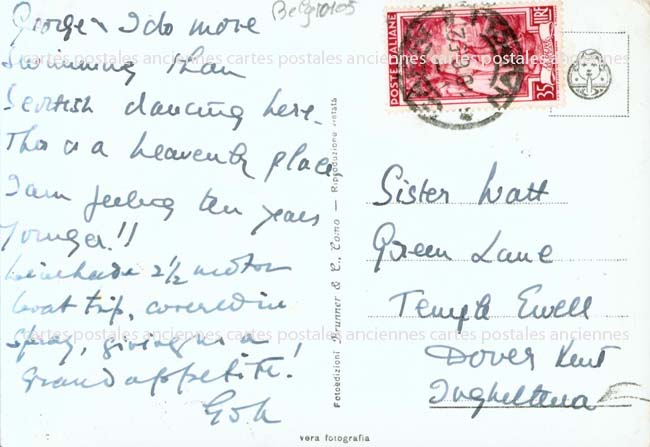 George & I do more
swimming than
Scottish dancing here.
This is a heavenly place
I am feeling ten years
younger.!!
2½ motor
boat trip, covered in
spray, giving us a
grand appetite!
Belgio105
POSTE ITALIANE
LIRE
35
52
Sister Watt
Green Lane
Temple Ewell
Dover Kent
Inghilterra
Fotoedizioni Brunner & C., Como — Riproduzione vietata
vera fotografia
cartes postales anciennes cartes postales anciennes cartes postales anciennes
cartes postales anciennes cartes postales anciennes cartes postales anciennes